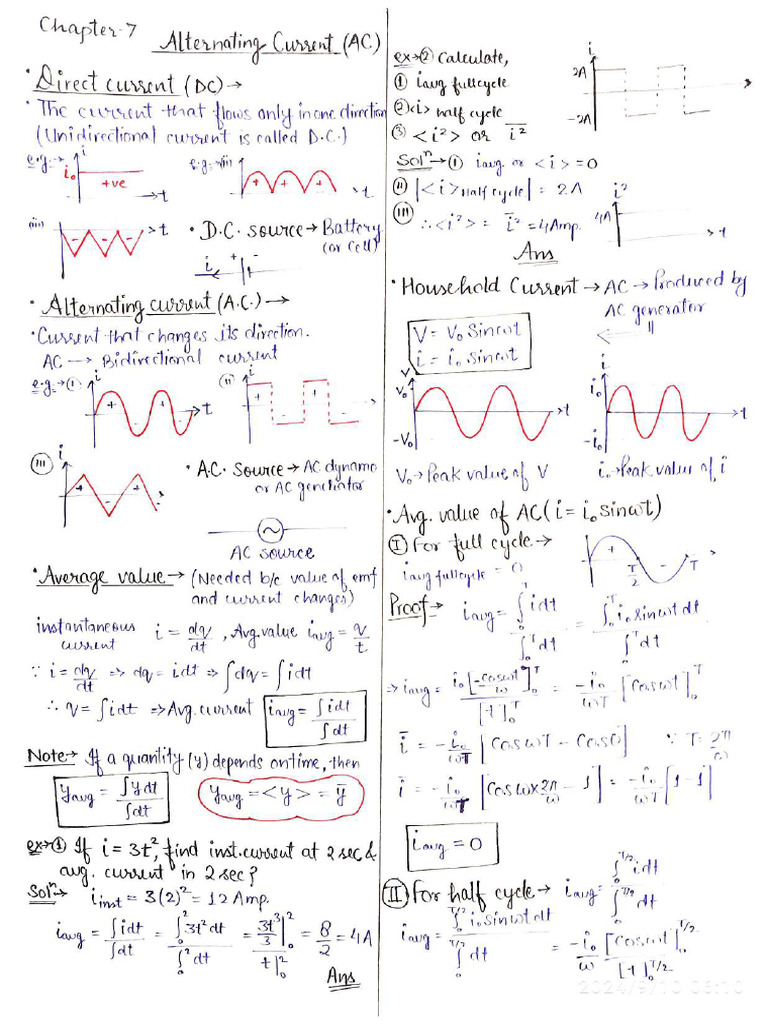 Chapter-7
Alternating Current (AC)
• Direct current (DC) →
• The current that flows only in one direction
(Unidirectional current is called D.C.)
e.g.→ i
i₀
+ve
→t
e.g.→(ii)
+ + +
t
(iii)
- - -
→t
• D.C. source → Battery
(or cell)
i + -
• Alternating current (A.C.) →
• Current that changes its direction.
AC → Bidirectional current
e.g.→(i) i
+ - + -
→t
(ii) i
+ - + -
(iii) i
+ - + -
• A.C. Source → AC dynamo
or AC generator
~
AC source
• Average value → (Needed b/c value of emf
and current changes)
instantaneous
current
i = dq/dt , Avg. value i avg = q/t
∵ i = dq/dt ⇒ dq = idt ⇒ ∫dq = ∫idt
∴ q = ∫idt ⇒ Avg. current i avg = ∫idt/∫dt
Note:→ If a quantity (y) depends on time, then
y avg = ∫ydt/∫dt
y avg = <y> = ȳ
ex→① If i = 3t², find inst. current at 2 sec &
avg. current in 2 sec?
Solⁿ→ i inst = 3(2)² = 12 Amp.
i avg = ∫idt/∫dt = ∫₀² 3t² dt/∫₀² dt = 3t³/3|₀²/t|₀² = 8/2 = 4A
Ans
ex→② Calculate,
① i avg fullcycle
② <i> half cycle
③ <i²> or i̅²
i
2A
-2A
Solⁿ→① i avg or <i> = 0
(ii) |<i> Half cycle| = 2A
(iii) ∴ <i²> = i̅² = 4Amp.
i²
4A
→t
Ans
• Household Current → AC → Produced by
AC generator
V = V₀ Sinωt
i = i₀ Sinωt
V
V₀
-V₀
→t
i
i₀
-i₀
→t
V₀→Peak value of V
i₀→Peak value of i
• Avg. value of AC (i = i₀ sinωt)
Ⅰ For full cycle →
i avg fullcycle = 0
+ -
T/2
T
Proof→ i avg = ∫₀ᵀ idt/∫₀ᵀ dt = ∫₀ᵀ i₀ sinωt dt/∫₀ᵀ dt
⇒ i avg = i₀[-cosωt/ω]₀ᵀ/[t]₀ᵀ = -i₀/ωT [cosωt]₀ᵀ
i̅ = -i₀/ωT [cosωT - cos0] ∵ T = 2π/ω
i̅ = -i₀/ωT [cosω×2π/ω - 1] = -i₀/ωT [1-1]
i avg = 0
Ⅱ For half cycle → i avg = ∫₀ᵀ/² idt/∫₀ᵀ/² dt
i avg = ∫₀ᵀ/² i₀ sinωt dt/∫₀ᵀ/² dt = -i₀/ω [cosωt]₀ᵀ/²/[t]₀ᵀ/²
2024/9/10 06:10